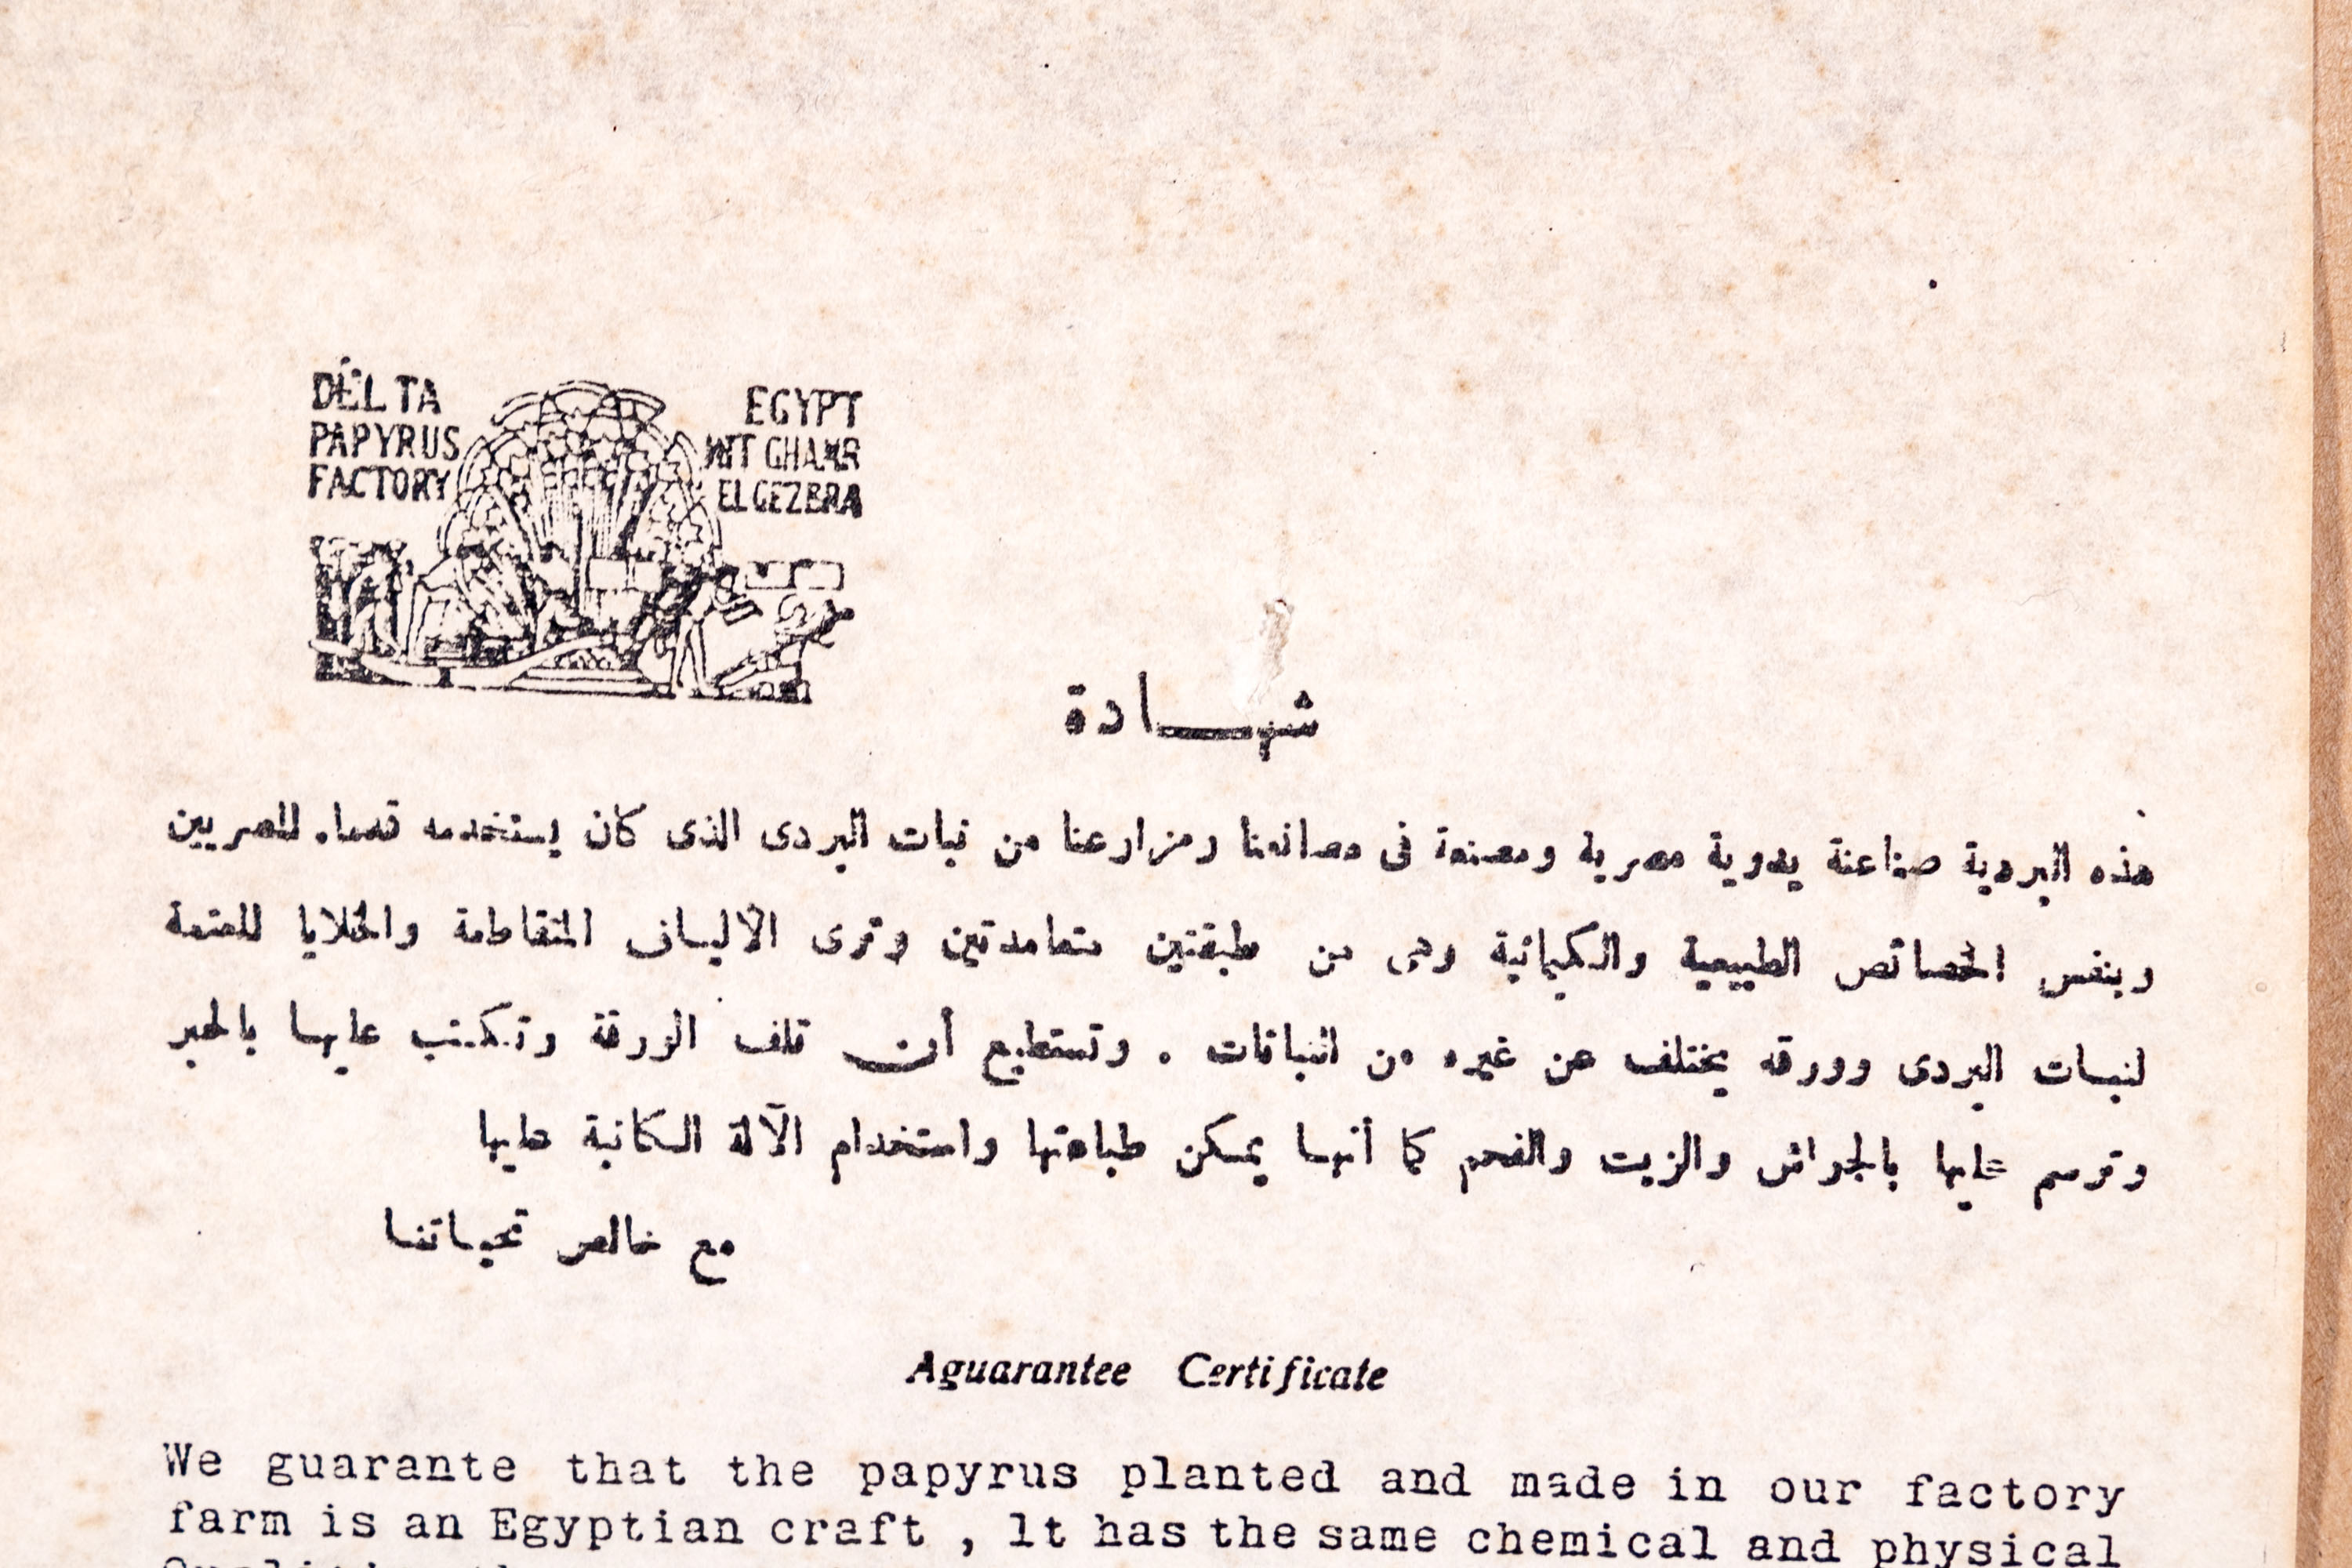 DELTA
PAPYRUS
FACTORY
EGYPT
MIT GHAMR
EL GEZERA
شهـــادة
هذه البردية صناعنة يدوية مصرية ومصنعة فى مصانعنا ومزارعنا من نبات البردى الذى كان يستخدمه قدما. المصريين
وبنفس الخصائص الطبيعية والكيمائية وهى من طبقتين متعامدتين وترى الاليساف المتقاطعة والخلايا المعتمة
لنبسات البردى وورقه يختلف عن غيره من النباتات . وتستطيع أن تلف الورقة وتكتب عليهـا بالحبر
وترسم عليها بالجواش والزيت والفحم كما أنهـا يمكن طباعتها واستخدام الآلة الكاتبة عليها
مع خالص تحيـاتنـا
Aguarantee Certificate
We guarante that the papyrus planted and made in our factory
farm is an Egyptian craft , lt has the same chemical and physical